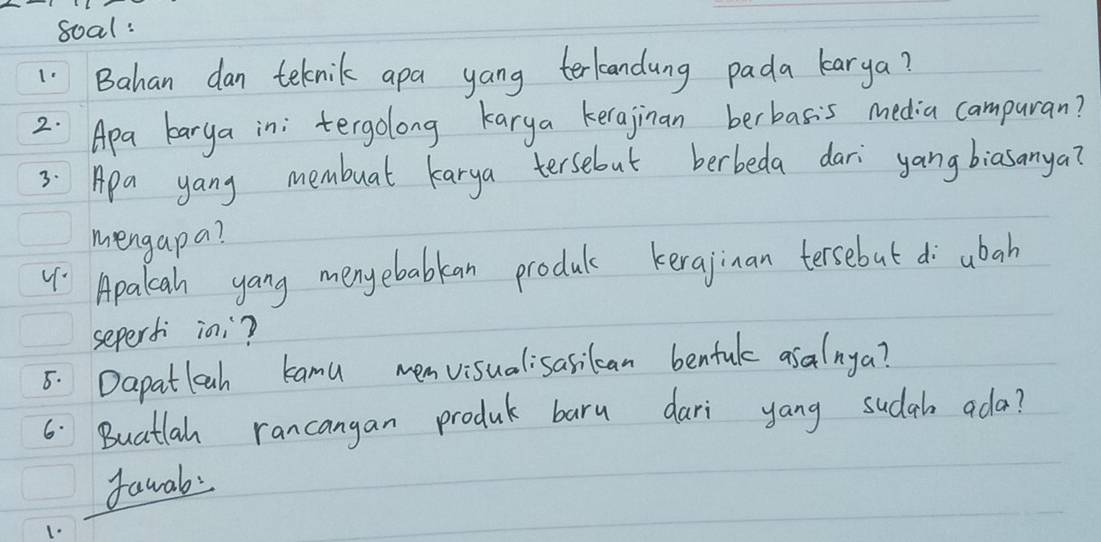 Soal:
1. Bahan dan teknik apa yang terkandung pada karya?
2. Apa karya ini tergolong karya kerajinan berbasis media campuran?
3. Apa yang membuat karya tersebut berbeda dari yang biasanya?
mengapa?
4. Apakah yang menyebabkan produk kerajinan tersebut di ubah
seperti ini?
5. Dapatkah kamu memvisualisasikan bentuk asalnya?
6. Buatlah rancangan produk baru dari yang sudah ada?
Jawab:
1.